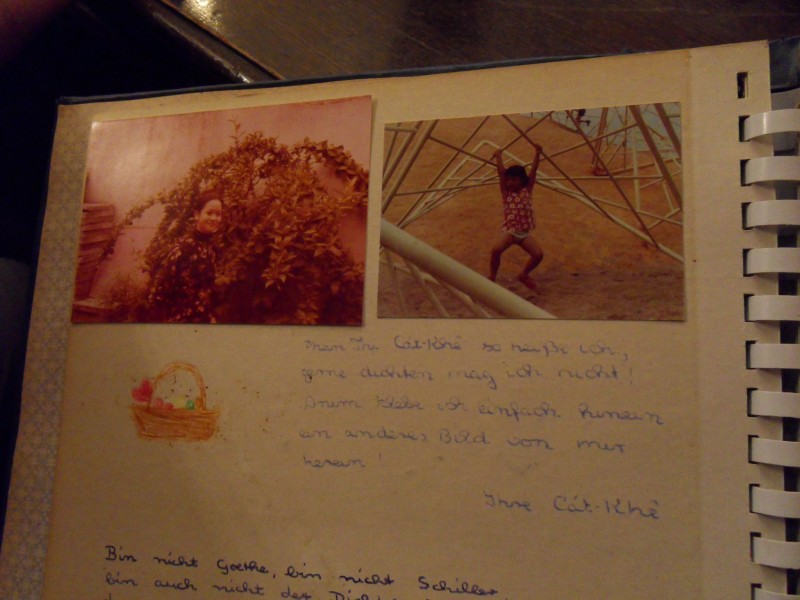 Thi Cát-Khê so heiße ich,
gerne dichten mag ich nicht!
Drum klebe ich einfach hinein
ein anderes Bild von mir
herein!
Ihre Cát-Khê
Bin nicht Goethe, bin nicht Schiller
bin auch nicht der